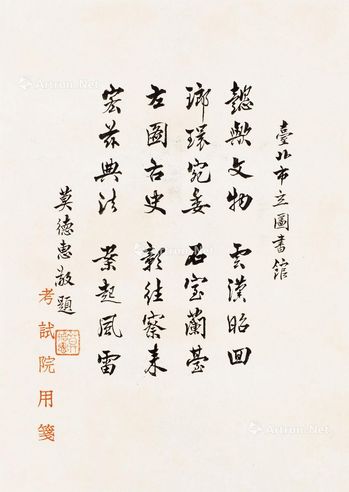 臺北市立圖書館
懿歟文物 雲漢昭回
瑯環宛委 石室蘭臺
左圖右史 彰往察來
宏茲典法 業起風雷
莫德惠敬題
考試院用箋
Artron.Net
Artron.Net